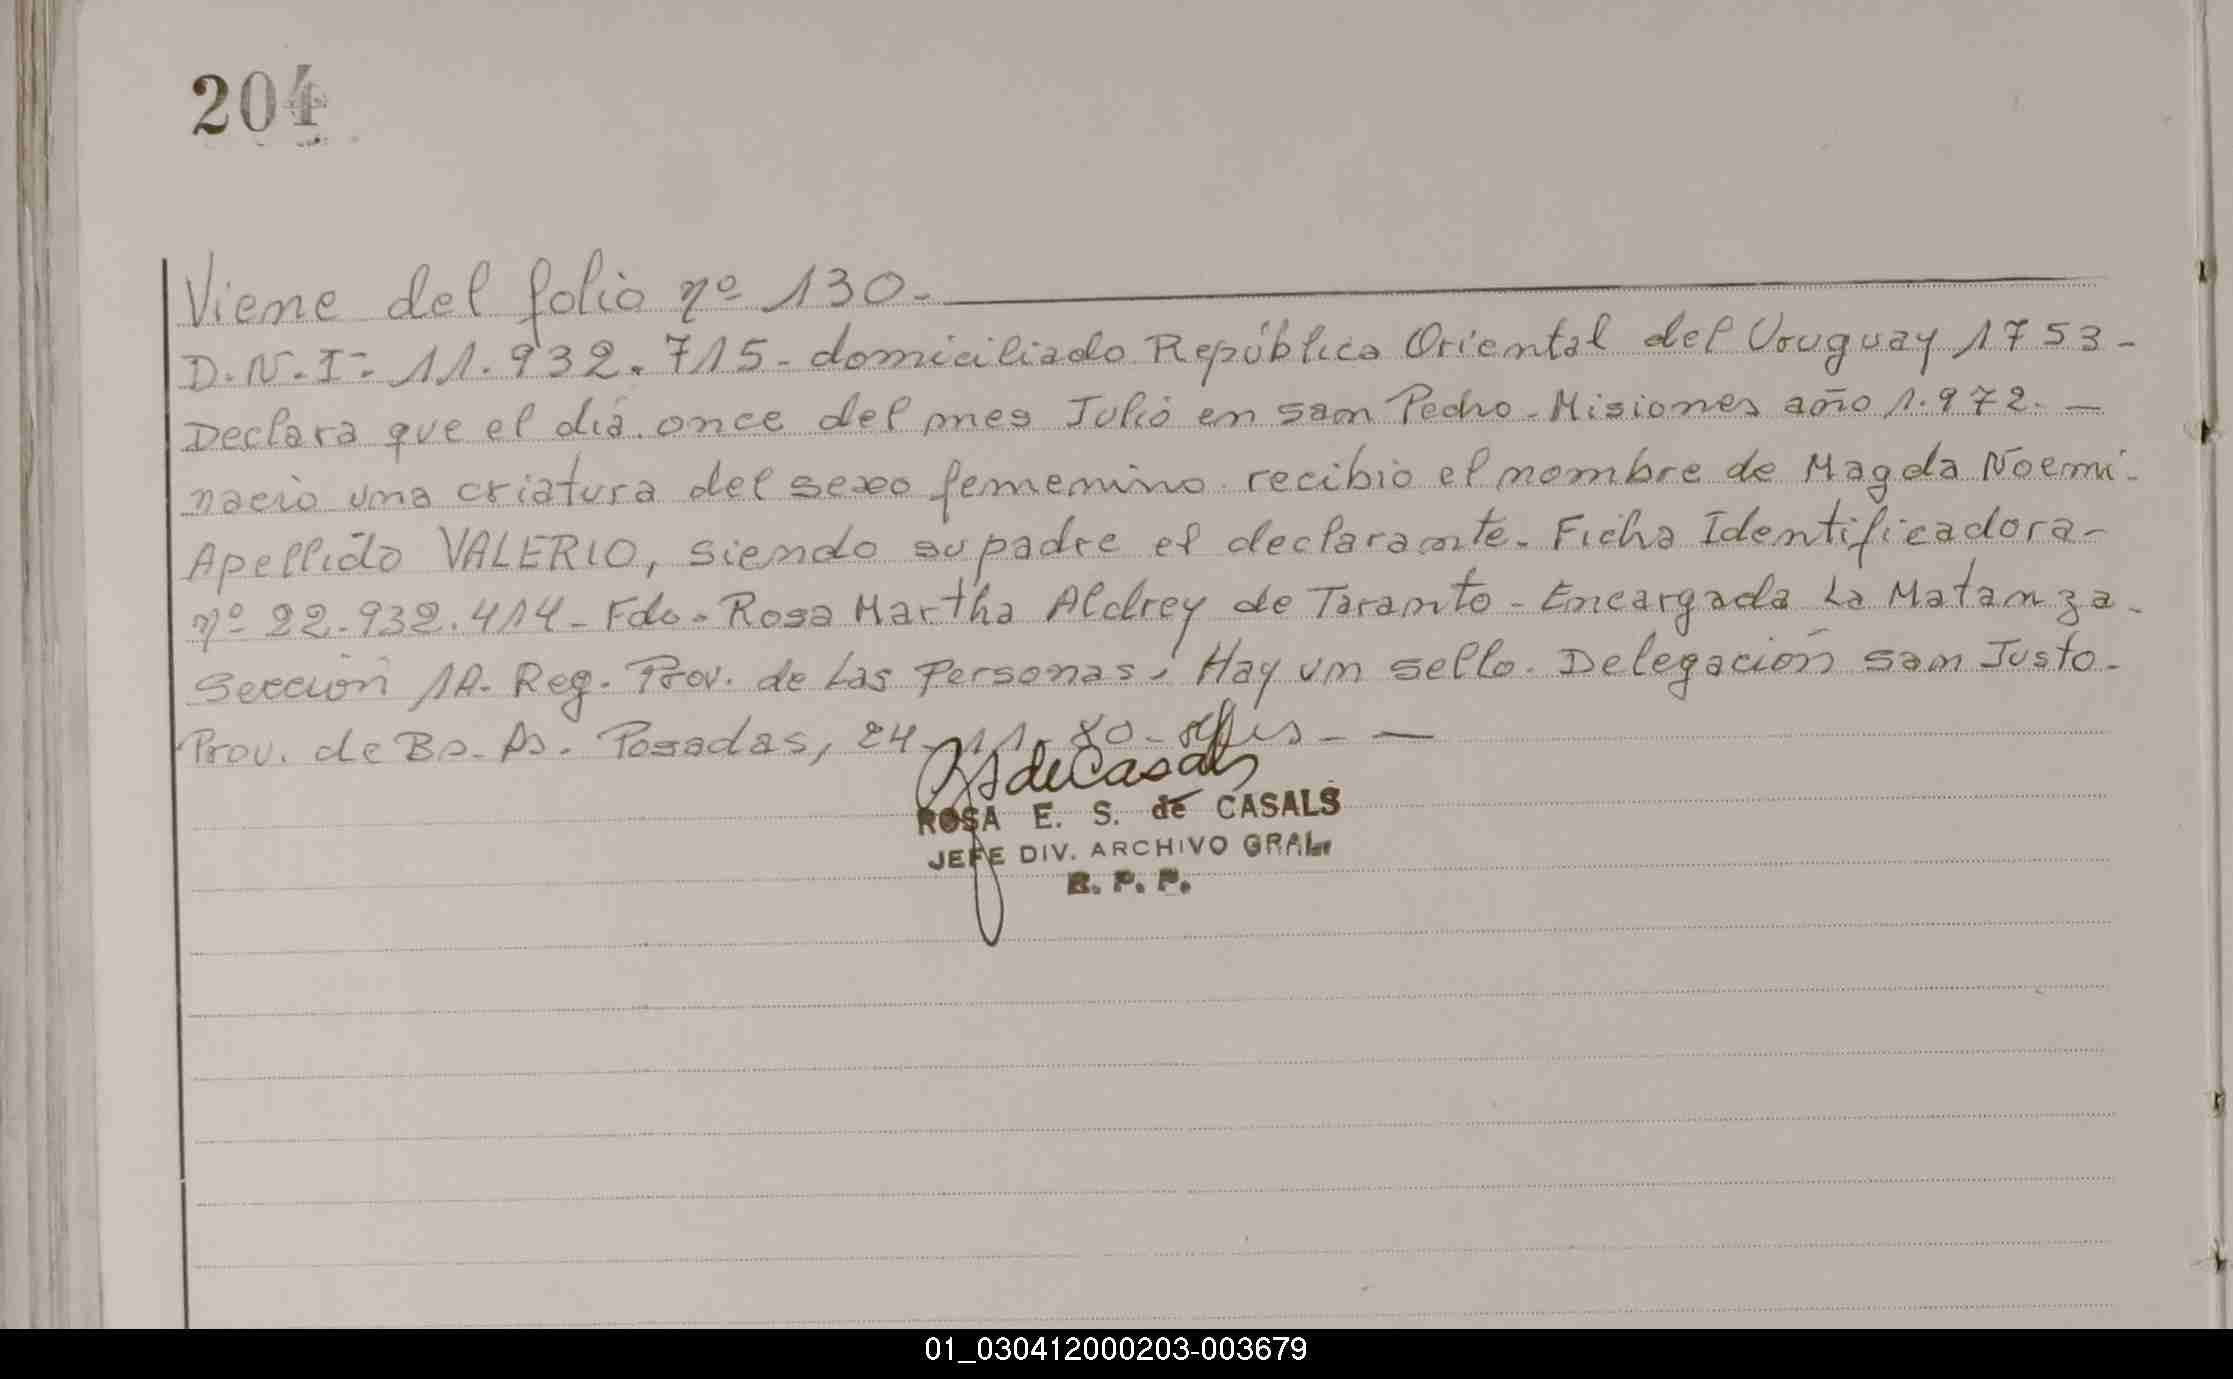 204
Viene del folio nº 130.
D.N.I= 11.932.715- domiciliado República Oriental del Uruguay 1753-
Declara que el día once del mes Julio en San Pedro-Misiones año 1.972.—
nacio una criatura del sexo femenino recibio el nombre de Magda Noemi-
Apellido VALERIO, siendo su padre el declarante. Ficha Identificadora-
nº 22.932.414- Fdo. Rosa Martha Aldrey de Taranto - Encargada La Matanza-
Sección 1A. Reg. Prov. de Las Personas. Hay un sello. Delegación San Justo-
Prov. de Bs. As. Posadas, 24-11-80-
deCasals
ROSA E. S. de CASALS
JEFE DIV. ARCHIVO GRAL.
R. P. P.
01_030412000203-003679